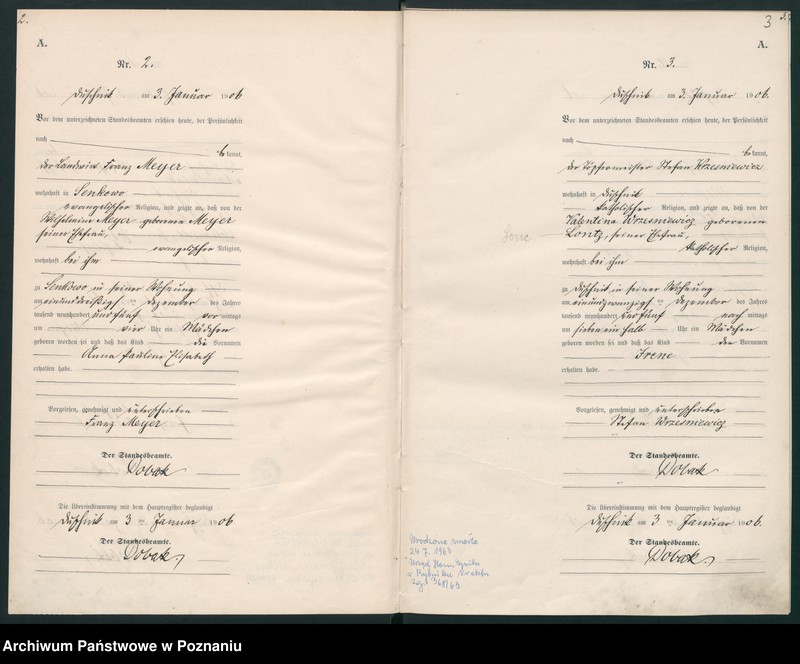 2.
A.
Nr. 2.
Duschnik am 3. Januar 1906
Vor dem unterzeichneten Standesbeamten erschien heute, der Persönlichkeit
nach
bekannt,
der Landwirt Franz Meyer
wohnhaft in Senkowo
evangelischer Religion, und zeigte an, daß von der
Wilhelmine Meyer geborenen Meyer
seiner Ehefrau,
evangelischer Religion,
wohnhaft bei ihm
zu Senkowo in seiner Wohnung
am einunddreißigsten Dezember des Jahres
tausend neunhundert und fünf vormittags
um vier Uhr ein Mädchen
geboren worden sei und daß das Kind die Vornamen
Anna Pauline Elisabeth
erhalten habe.
Vorgelesen, genehmigt und unterschrieben
Franz Meyer
Der Standesbeamte.
Dobak
Die Übereinstimmung mit dem Hauptregister beglaubigt
Duschnik am 3 ten Januar 1906
Der Standesbeamte.
Dobak
3
A.
Nr. 3.
Duschnik am 3. Januar 1906.
Vor dem unterzeichneten Standesbeamten erschien heute, der Persönlichkeit
nach
bekannt,
der Töpfermeister Stefan Wrzesniewicz
wohnhaft in Duschnik
katholischer Religion, und zeigte an, daß von der
Valentina Wrzesniewicz geborenen
Lontz, seiner Ehefrau,
katholischer Religion,
wohnhaft bei ihm
zu Duschnik in seiner Wohnung
am einundzwanzigsten Dezember des Jahres
tausend neunhundert und fünf nachmittags
um sieben ein halb Uhr ein Mädchen
geboren worden sei und daß das Kind den Vornamen
Irene
erhalten habe.
Vorgelesen, genehmigt und unterschrieben
Stefan Wrzesniewicz
Der Standesbeamte.
Dobak
Die Übereinstimmung mit dem Hauptregister beglaubigt
Duschnik am 3 ten Januar 1906.
Der Standesbeamte.
Dobak
Urodzona zmarła
24 7. 1963
Urząd Stanu Cywiln
w
368/63
Archiwum Państwowe w Poznaniu